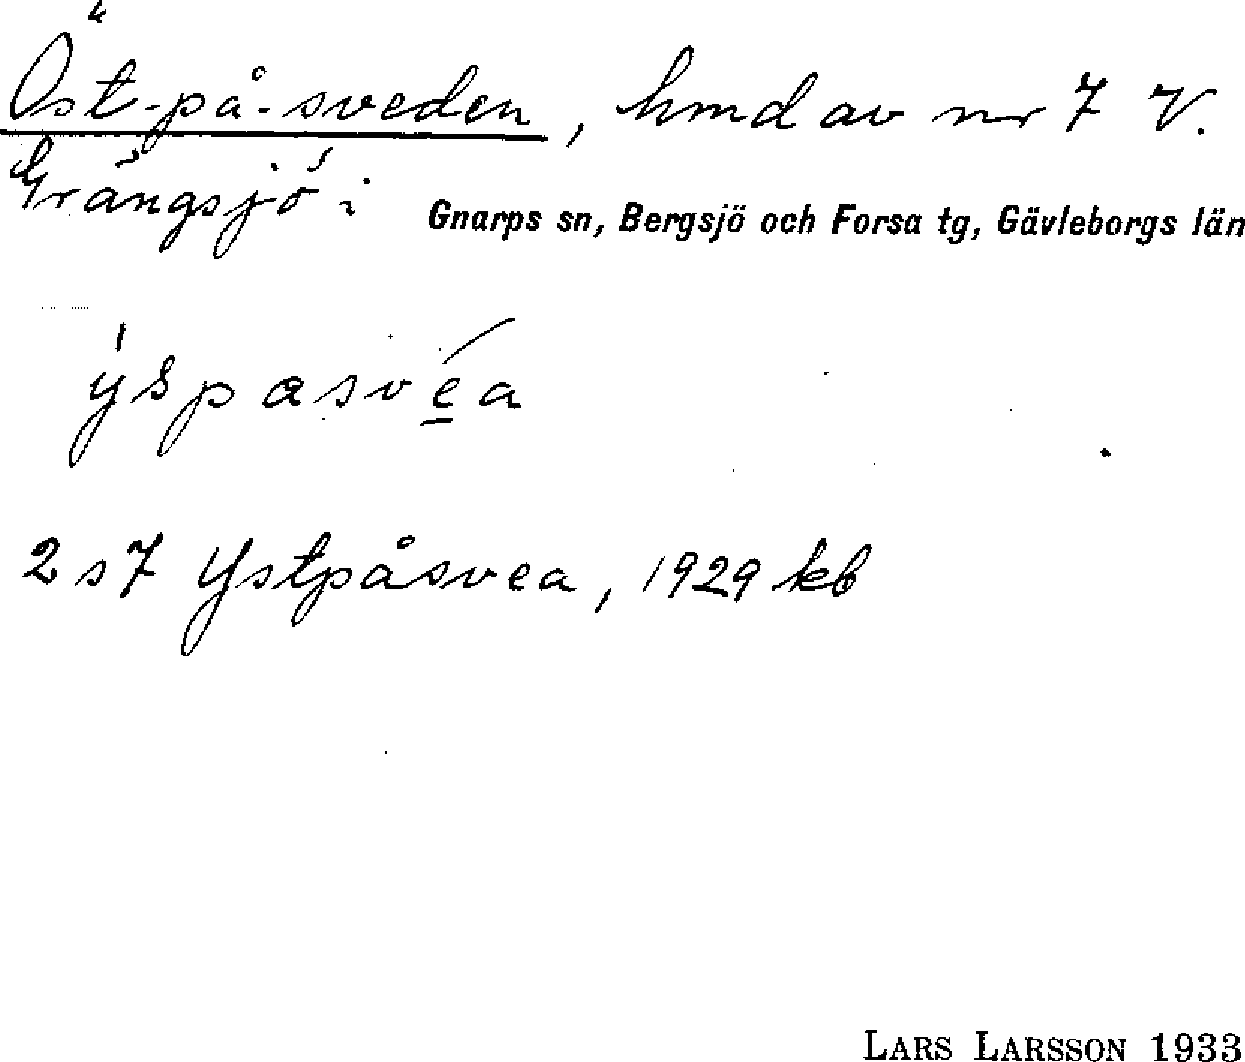 Öst-på-sveden, hmd av nr 7 V.
Grängsjö i Gnarps sn, Bergsjö och Forsa tg, Gävleborgs län
ýspasvéa
2 s 7 Ystpåsvea, 1929 kb
LARS LARSSON 1933